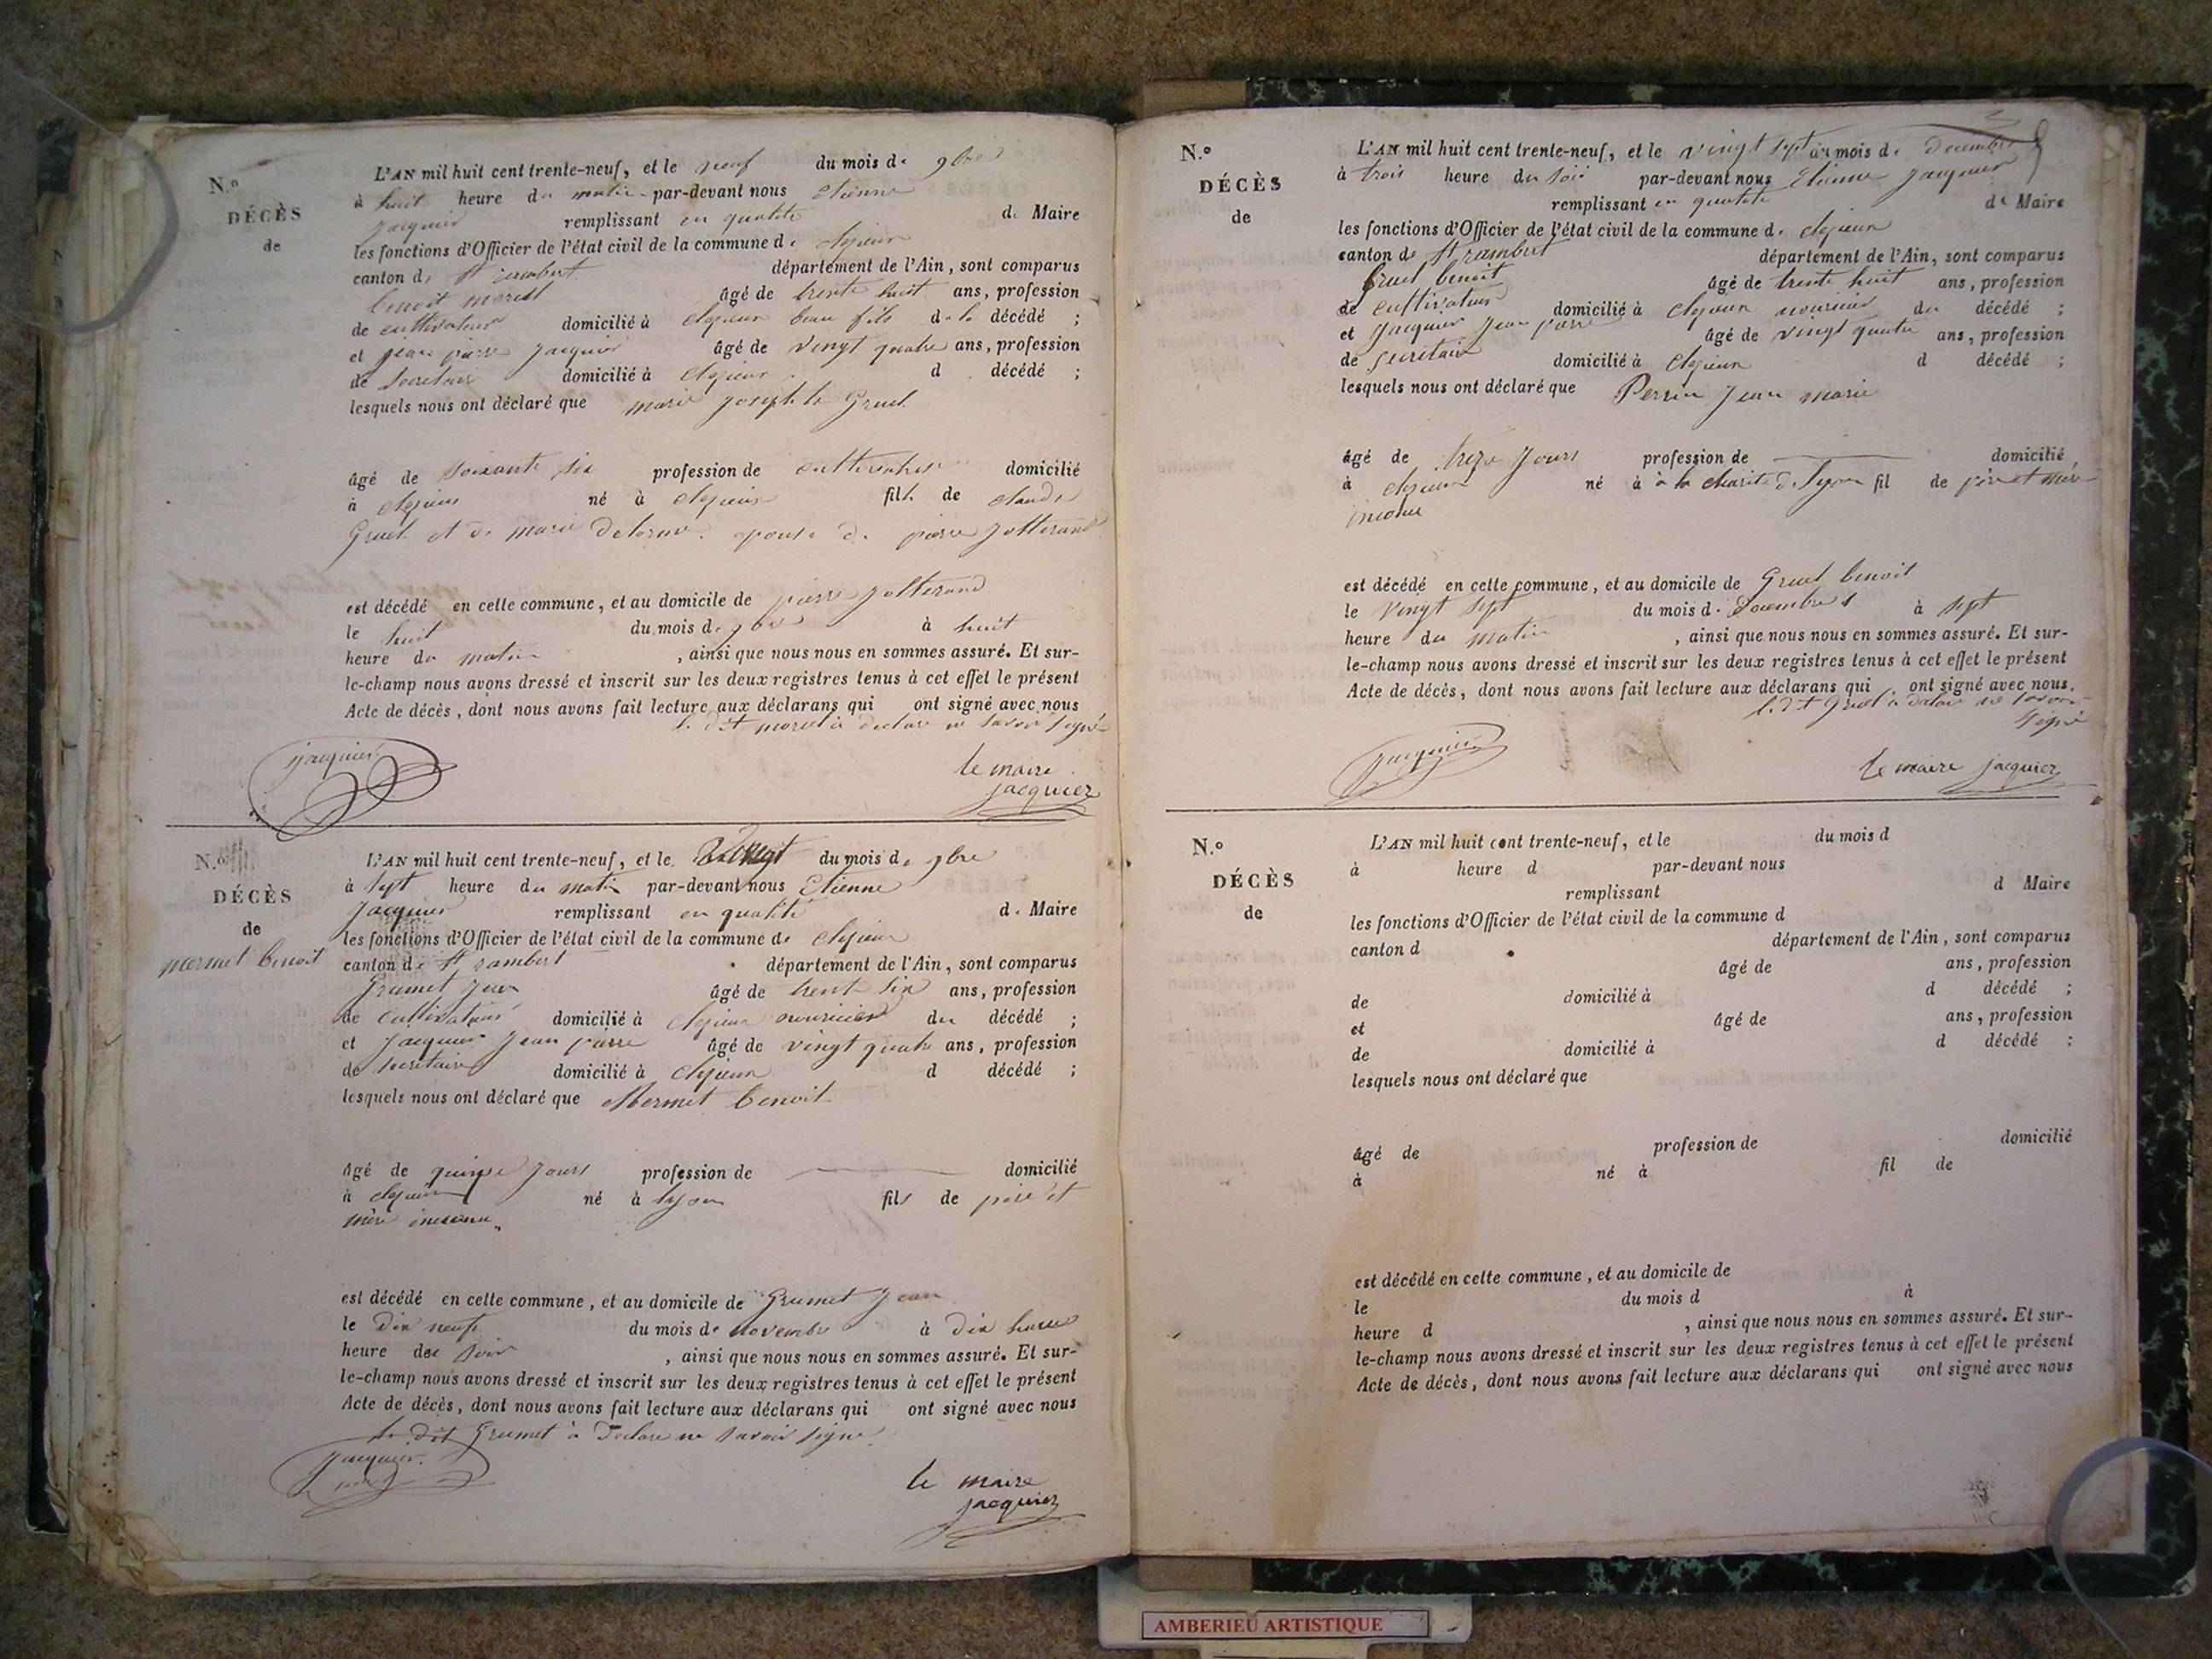 N.o
DÉCÈS
de
L'AN mil huit cent trente-neuf, et le neuf du mois de 9bre
à huit heure du matin par-devant nous Etienne
Jacquier remplissant en qualité de Maire
les fonctions d'Officier de l'état civil de la commune de
canton de St rambert département de l'Ain, sont comparus
benoit morel âgé de trente huit ans, profession
de cultivateur domicilié à beau fils de la décédé ;
et jean pierre jacquier âgé de vingt quatre ans, profession
de secretaire domicilié à d décédé ;
lesquels nous ont déclaré que marie josephte Gruel
âgé de soixante six profession de cultivatrice domicilié
à né à fille de claude
Gruel et de marie Delorme epouse de pierre jotterand
est décédé en cette commune, et au domicile de pierre jotterand
le huit du mois de 9bre à huit
heure du matin , ainsi que nous nous en sommes assuré. Et sur-
le-champ nous avons dressé et inscrit sur les deux registres tenus à cet effet le présent
Acte de décès, dont nous avons fait lecture aux déclarans qui ont signé avec nous
le dit morel à declare ne savoir signé
jacquier
le maire
jacquier
N.o
DÉCÈS
de
mermet benoit
L'AN mil huit cent trente-neuf, et le Vingt du mois de 9bre
à sept heure du matin par-devant nous Etienne
Jacquier remplissant en qualité de Maire
les fonctions d'Officier de l'état civil de la commune de
canton de St rambert département de l'Ain, sont comparus
Grumet Jean âgé de trent six ans, profession
de cultivateur domicilié à nouricier du décédé ;
et Jacquier Jean pierre âgé de vingt quatre ans, profession
de secretaire domicilié à d décédé ;
lesquels nous ont déclaré que Mermet benoit
âgé de quinze jours profession de domicilié
à né à Lyon fils de père et
mère inconnu
est décédé en cette commune, et au domicile de Grumet Jean
le Dix neuf du mois de novembre à Dix heures
heure du soir , ainsi que nous nous en sommes assuré. Et sur-
le-champ nous avons dressé et inscrit sur les deux registres tenus à cet effet le présent
Acte de décès, dont nous avons fait lecture aux déclarans qui ont signé avec nous
le dit Grumet à Declare ne savoir signé
jacquier
le maire
jacquier
N.o
DÉCÈS
de
L'AN mil huit cent trente-neuf, et le vingt sept du mois de decembre
à trois heure du soir par-devant nous Etienne jacquier
remplissant en qualité de Maire
les fonctions d'Officier de l'état civil de la commune de
canton de St rambert département de l'Ain, sont comparus
Gruel benoit âgé de trente huit ans, profession
de cultivateur domicilié à nouricier du décédé ;
et jacquier jean pierre âgé de vingt quatre ans, profession
de secretaire domicilié à d décédé ;
lesquels nous ont déclaré que Perrin Jean marie
âgé de treze jours profession de domicilié
à né à à la charité de Lyon fil de père et mère
inconu
est décédé en cette commune, et au domicile de Gruel benoit
le vingt sept du mois de decembre à sept
heure du matin , ainsi que nous nous en sommes assuré. Et sur-
le-champ nous avons dressé et inscrit sur les deux registres tenus à cet effet le présent
Acte de décès, dont nous avons fait lecture aux déclarans qui ont signé avec nous.
le dit Gruel à declare ne savoir
signé
jacquier
le maire jacquier
N.o
DÉCÈS
de
L'AN mil huit cent trente-neuf, et le du mois d
à heure d par-devant nous
remplissant d Maire
les fonctions d'Officier de l'état civil de la commune d
canton d département de l'Ain, sont comparus
âgé de ans, profession
de domicilié à d décédé ;
et âgé de ans, profession
de domicilié à d décédé ;
lesquels nous ont déclaré que
âgé de profession de domicilié
à né à fil de
est décédé en cette commune, et au domicile de
le du mois d à
heure d , ainsi que nous nous en sommes assuré. Et sur-
le-champ nous avons dressé et inscrit sur les deux registres tenus à cet effet le présent
Acte de décès, dont nous avons fait lecture aux déclarans qui ont signé avec nous
AMBERIEU ARTISTIQUE